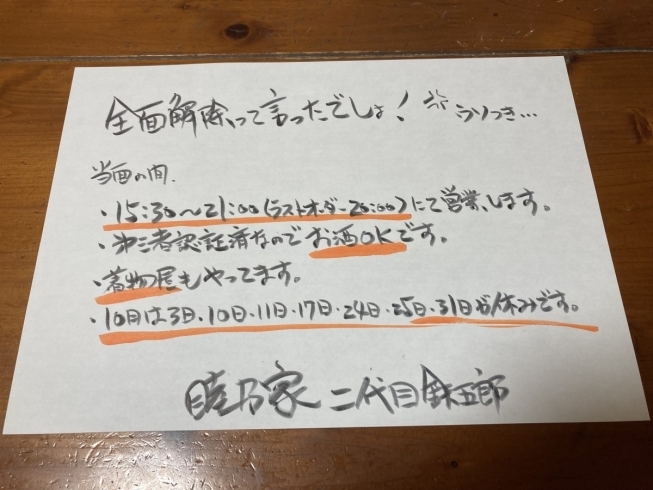 全面解除って言ったでしょ！ うそつき…
当面の間、
・15:30〜21:00(ラストオーダー20:00)にて営業します。
・第三者認証済なのでお酒OKです。
・着物屋もやってます。
・10月は3日・10日・11日・17日・24日・25日・31日がお休みです。
乃家 二代目 五郎